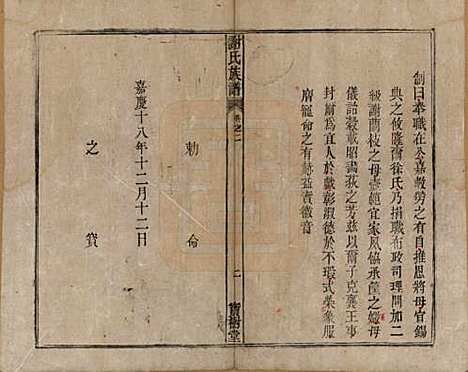 制曰奉職在公嘉敎勞之有自推恩將母宜錫
典之攸隆爾徐氏乃捐職布政司理問加二
級謝蘭枝之母壼範宜家夙協承筐之媺母
儀詒穀載昭畫荻之芳茲以爾子克襄王事
封爾爲宜人於戲彰淑德於不瑕式榮象服
膺寵命之有赫益賁徽音
謝氏族譜
卷之二
二
寶樹堂
嘉慶十八年十二月十二日
勅命
之寶